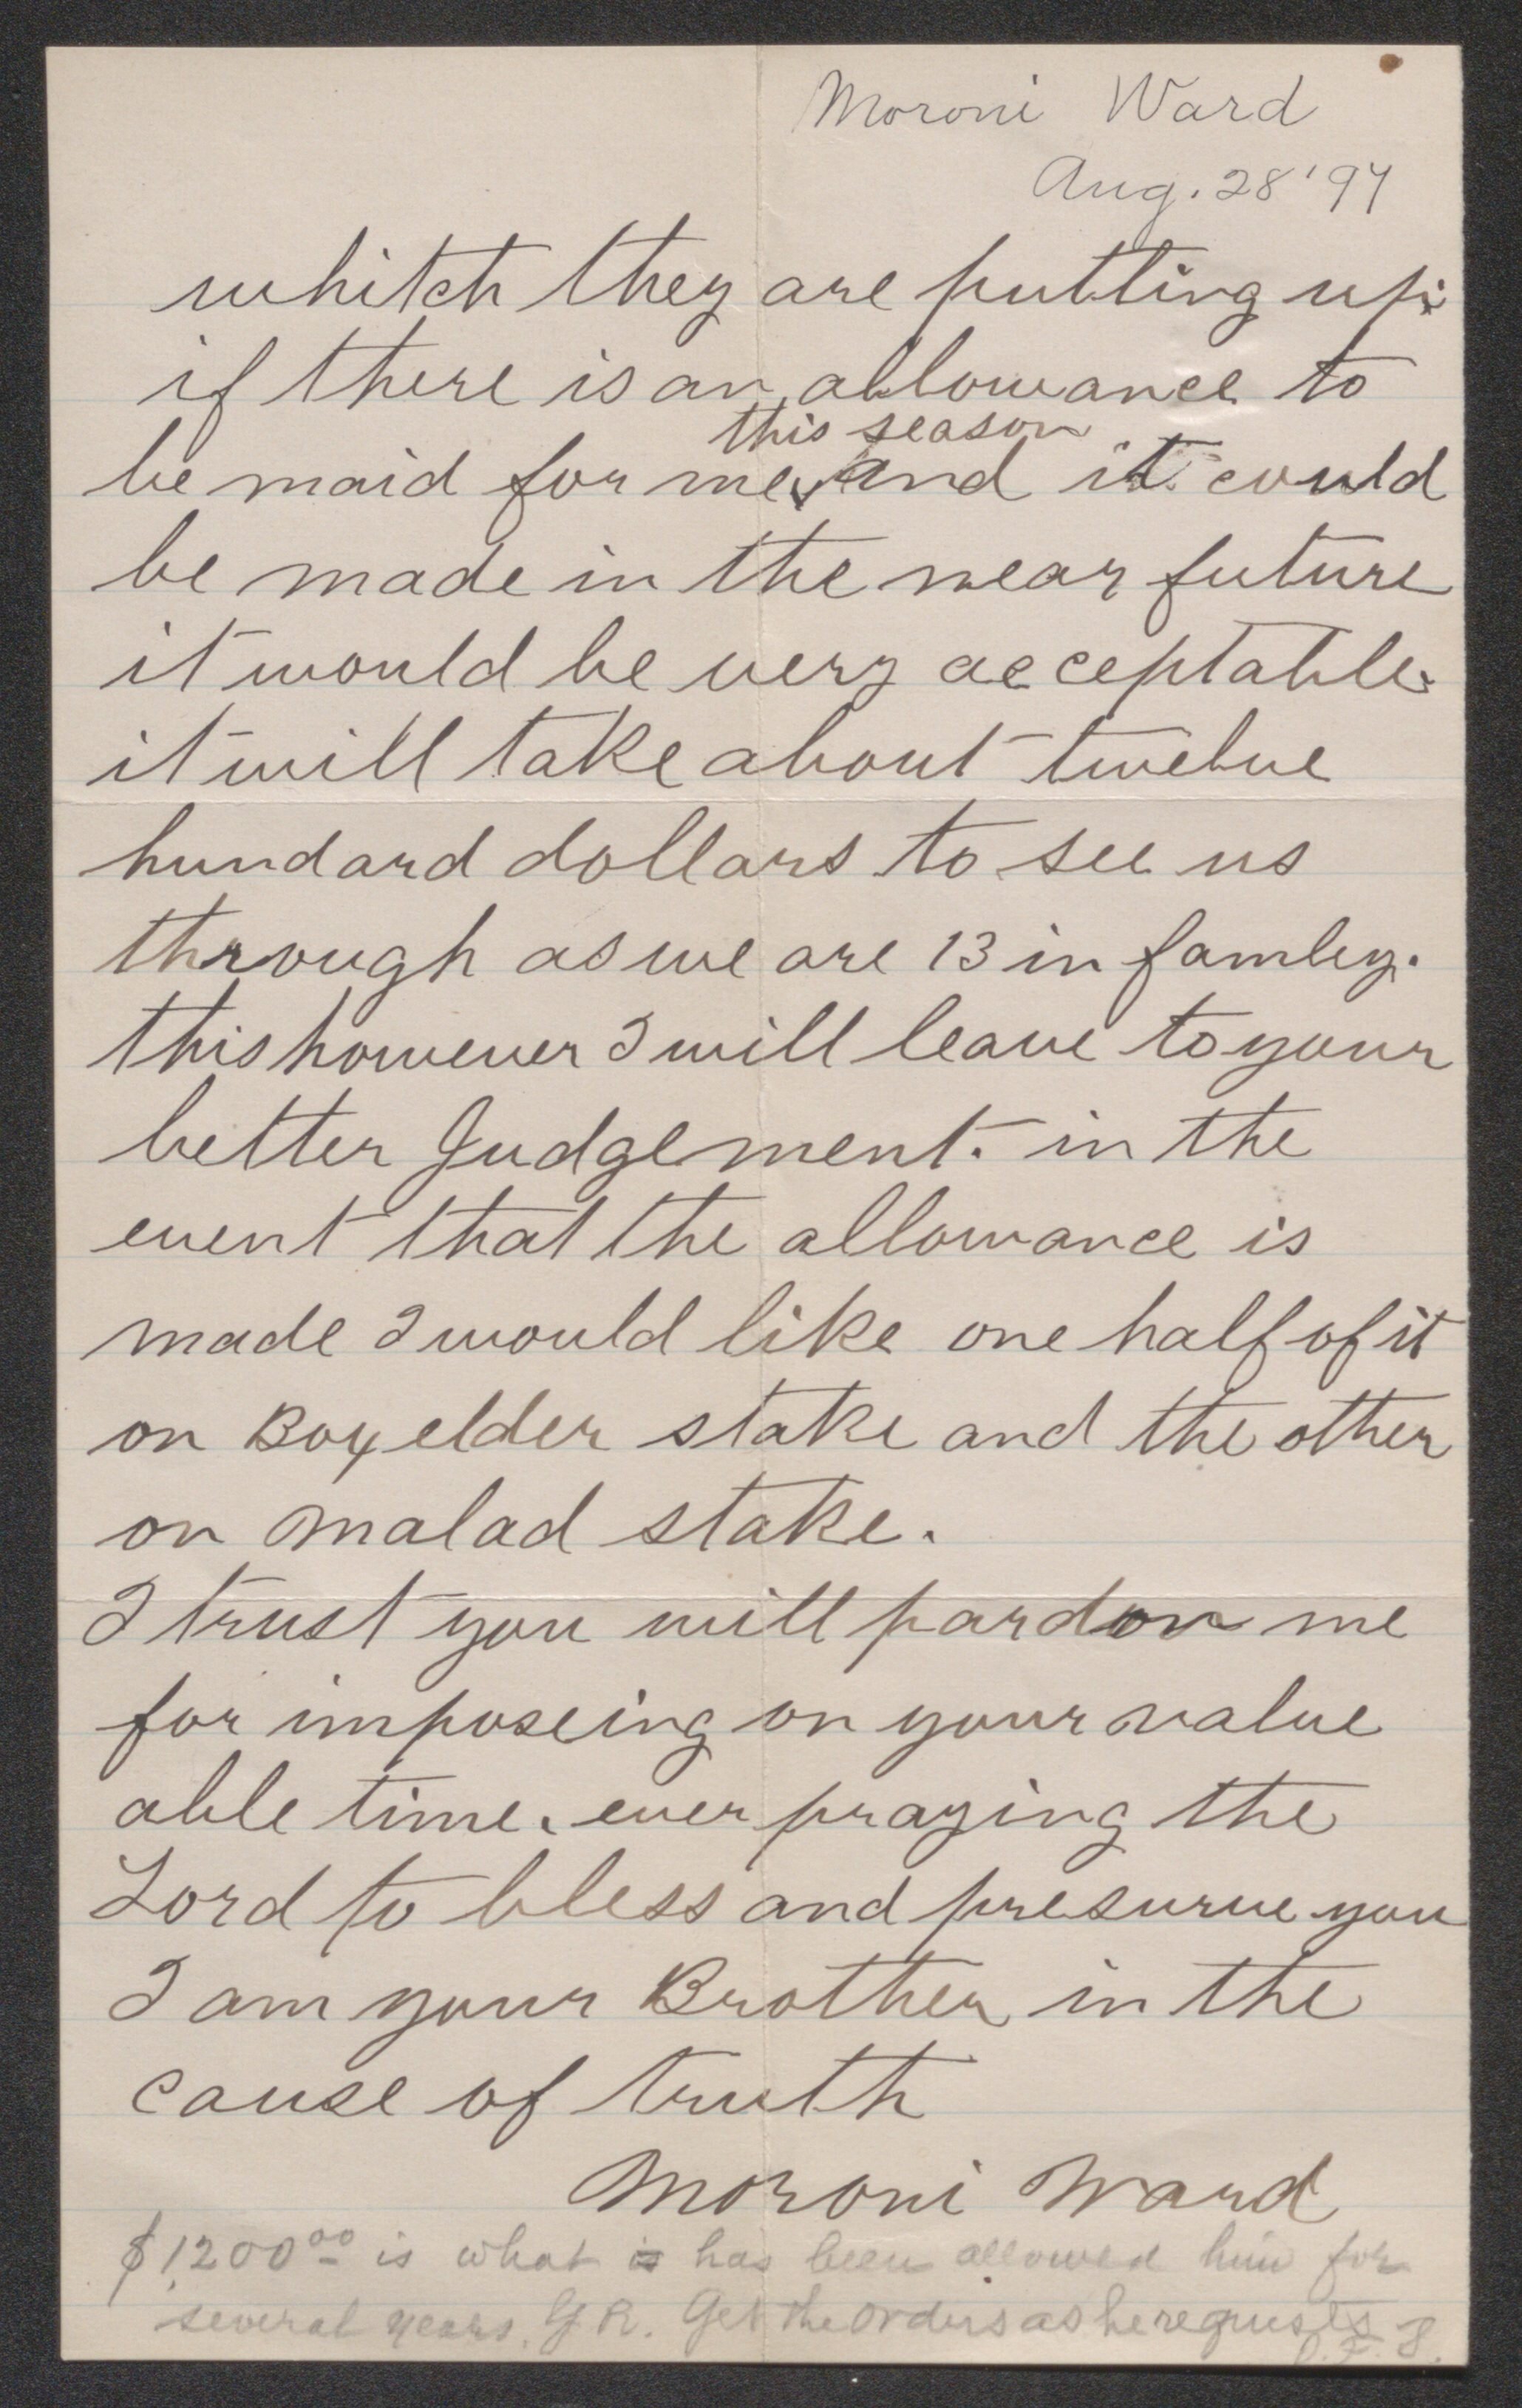 Moroni Ward
Aug. 28 '97
whitch they are putting up.
if there is an allowance to
this season
be maid for me, and it could
be made in the near future
it would be very acceptable.
it will take about twelve
hundard dollars to see us
through as we are 13 in famley.
this however I will leave to your
better Judgement. in the
event that the allowance is
made I would like one half of it
on Boxelder stake and the other
on malad stake.
I trust you will pardon me
for imposeing on your value
able time. ever praying the
Lord to bless and presurve you
I am your Brother in the
cause of truth
Moroni Ward
$1,200.00 is what is has been allowed him for
several years. G R. Get the orders as he requests
J. F. S.